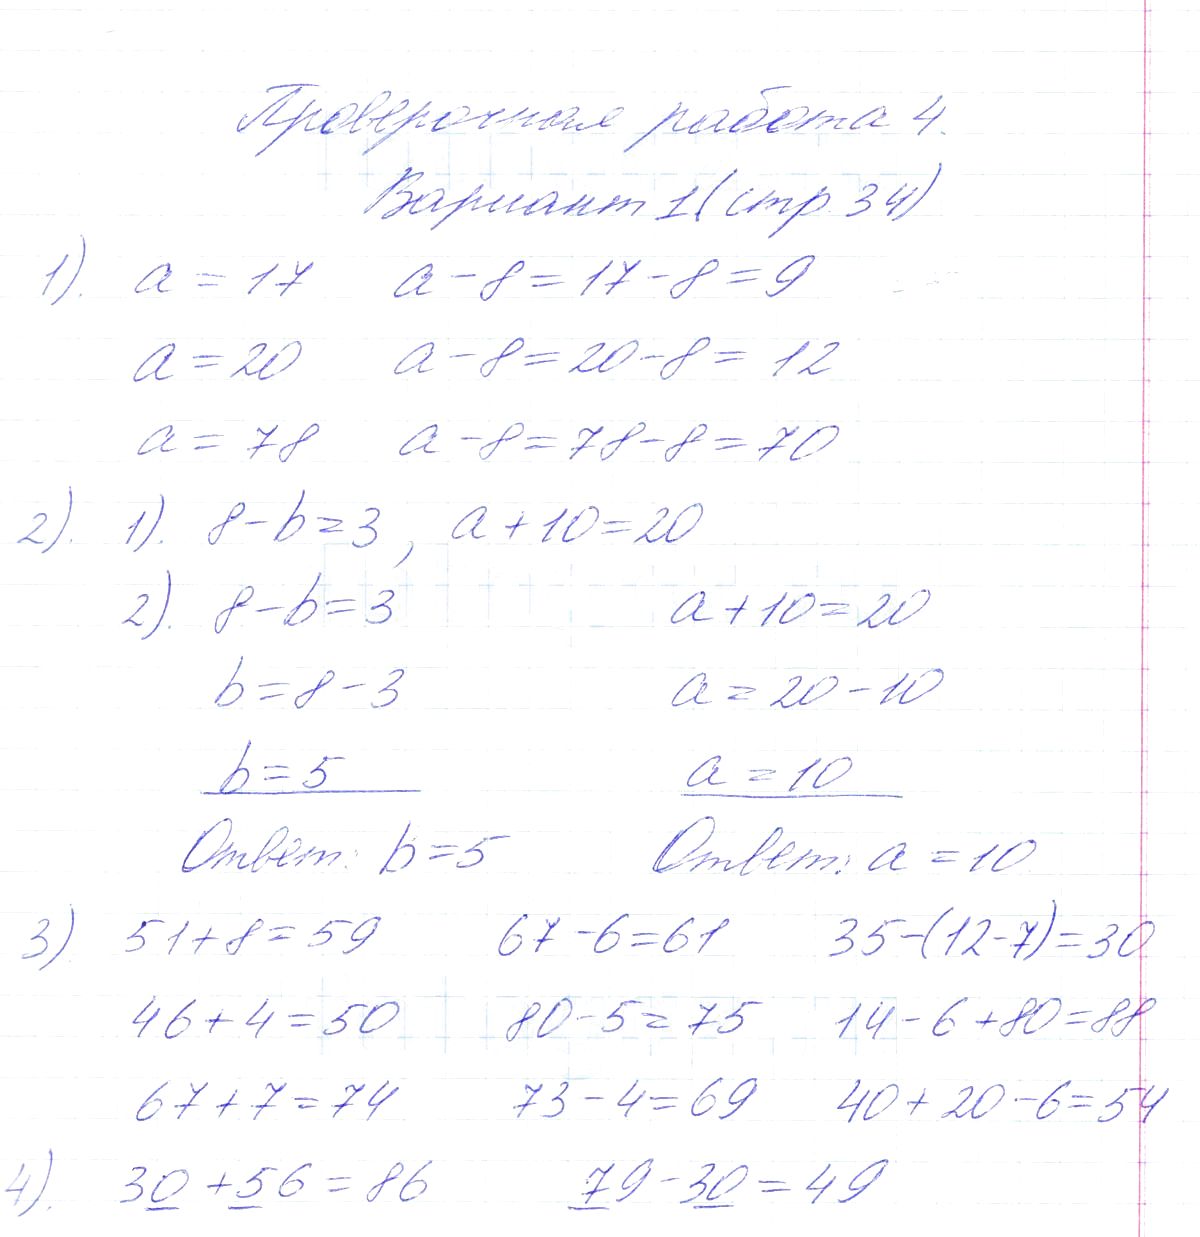 Проверочная работа 4.
Вариант 1 (стр. 34)
1). a = 17 a - 8 = 17 - 8 = 9
a = 20 a - 8 = 20 - 8 = 12
a = 78 a - 8 = 78 - 8 = 70
2). 1). 8 - b = 3, a + 10 = 20
2). 8 - b = 3 a + 10 = 20
b = 8 - 3 a = 20 - 10
b = 5 a = 10
Ответ: b = 5 Ответ: a = 10
3) 51 + 8 = 59 67 - 6 = 61 35 - (12 - 7) = 30
46 + 4 = 50 80 - 5 = 75 14 - 6 + 80 = 88
67 + 7 = 74 73 - 4 = 69 40 + 20 - 6 = 54
4). 30 + 56 = 86 79 - 30 = 49